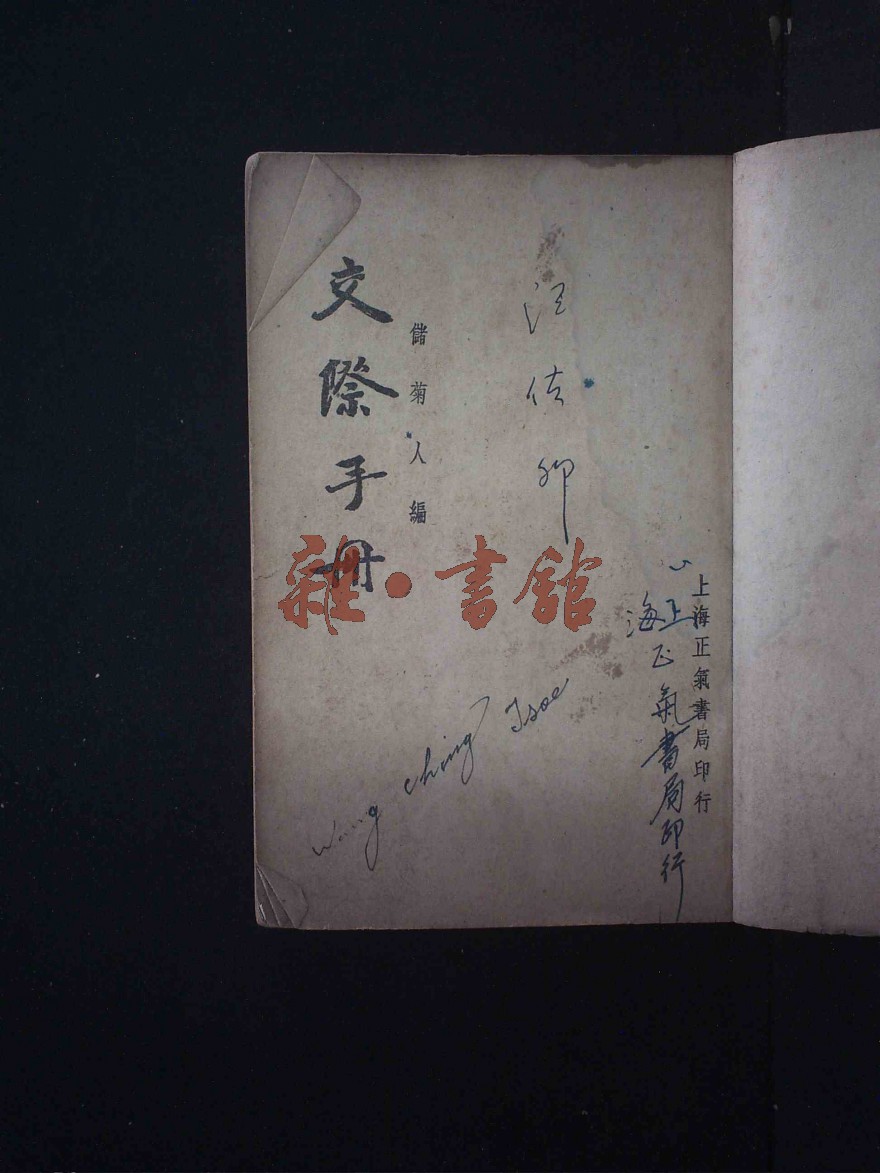 上海正氣書局印行
上海正氣書局印行
汪佐卿
儲菊人編
交際手冊
雜·書館
Wang Ching Tsoe